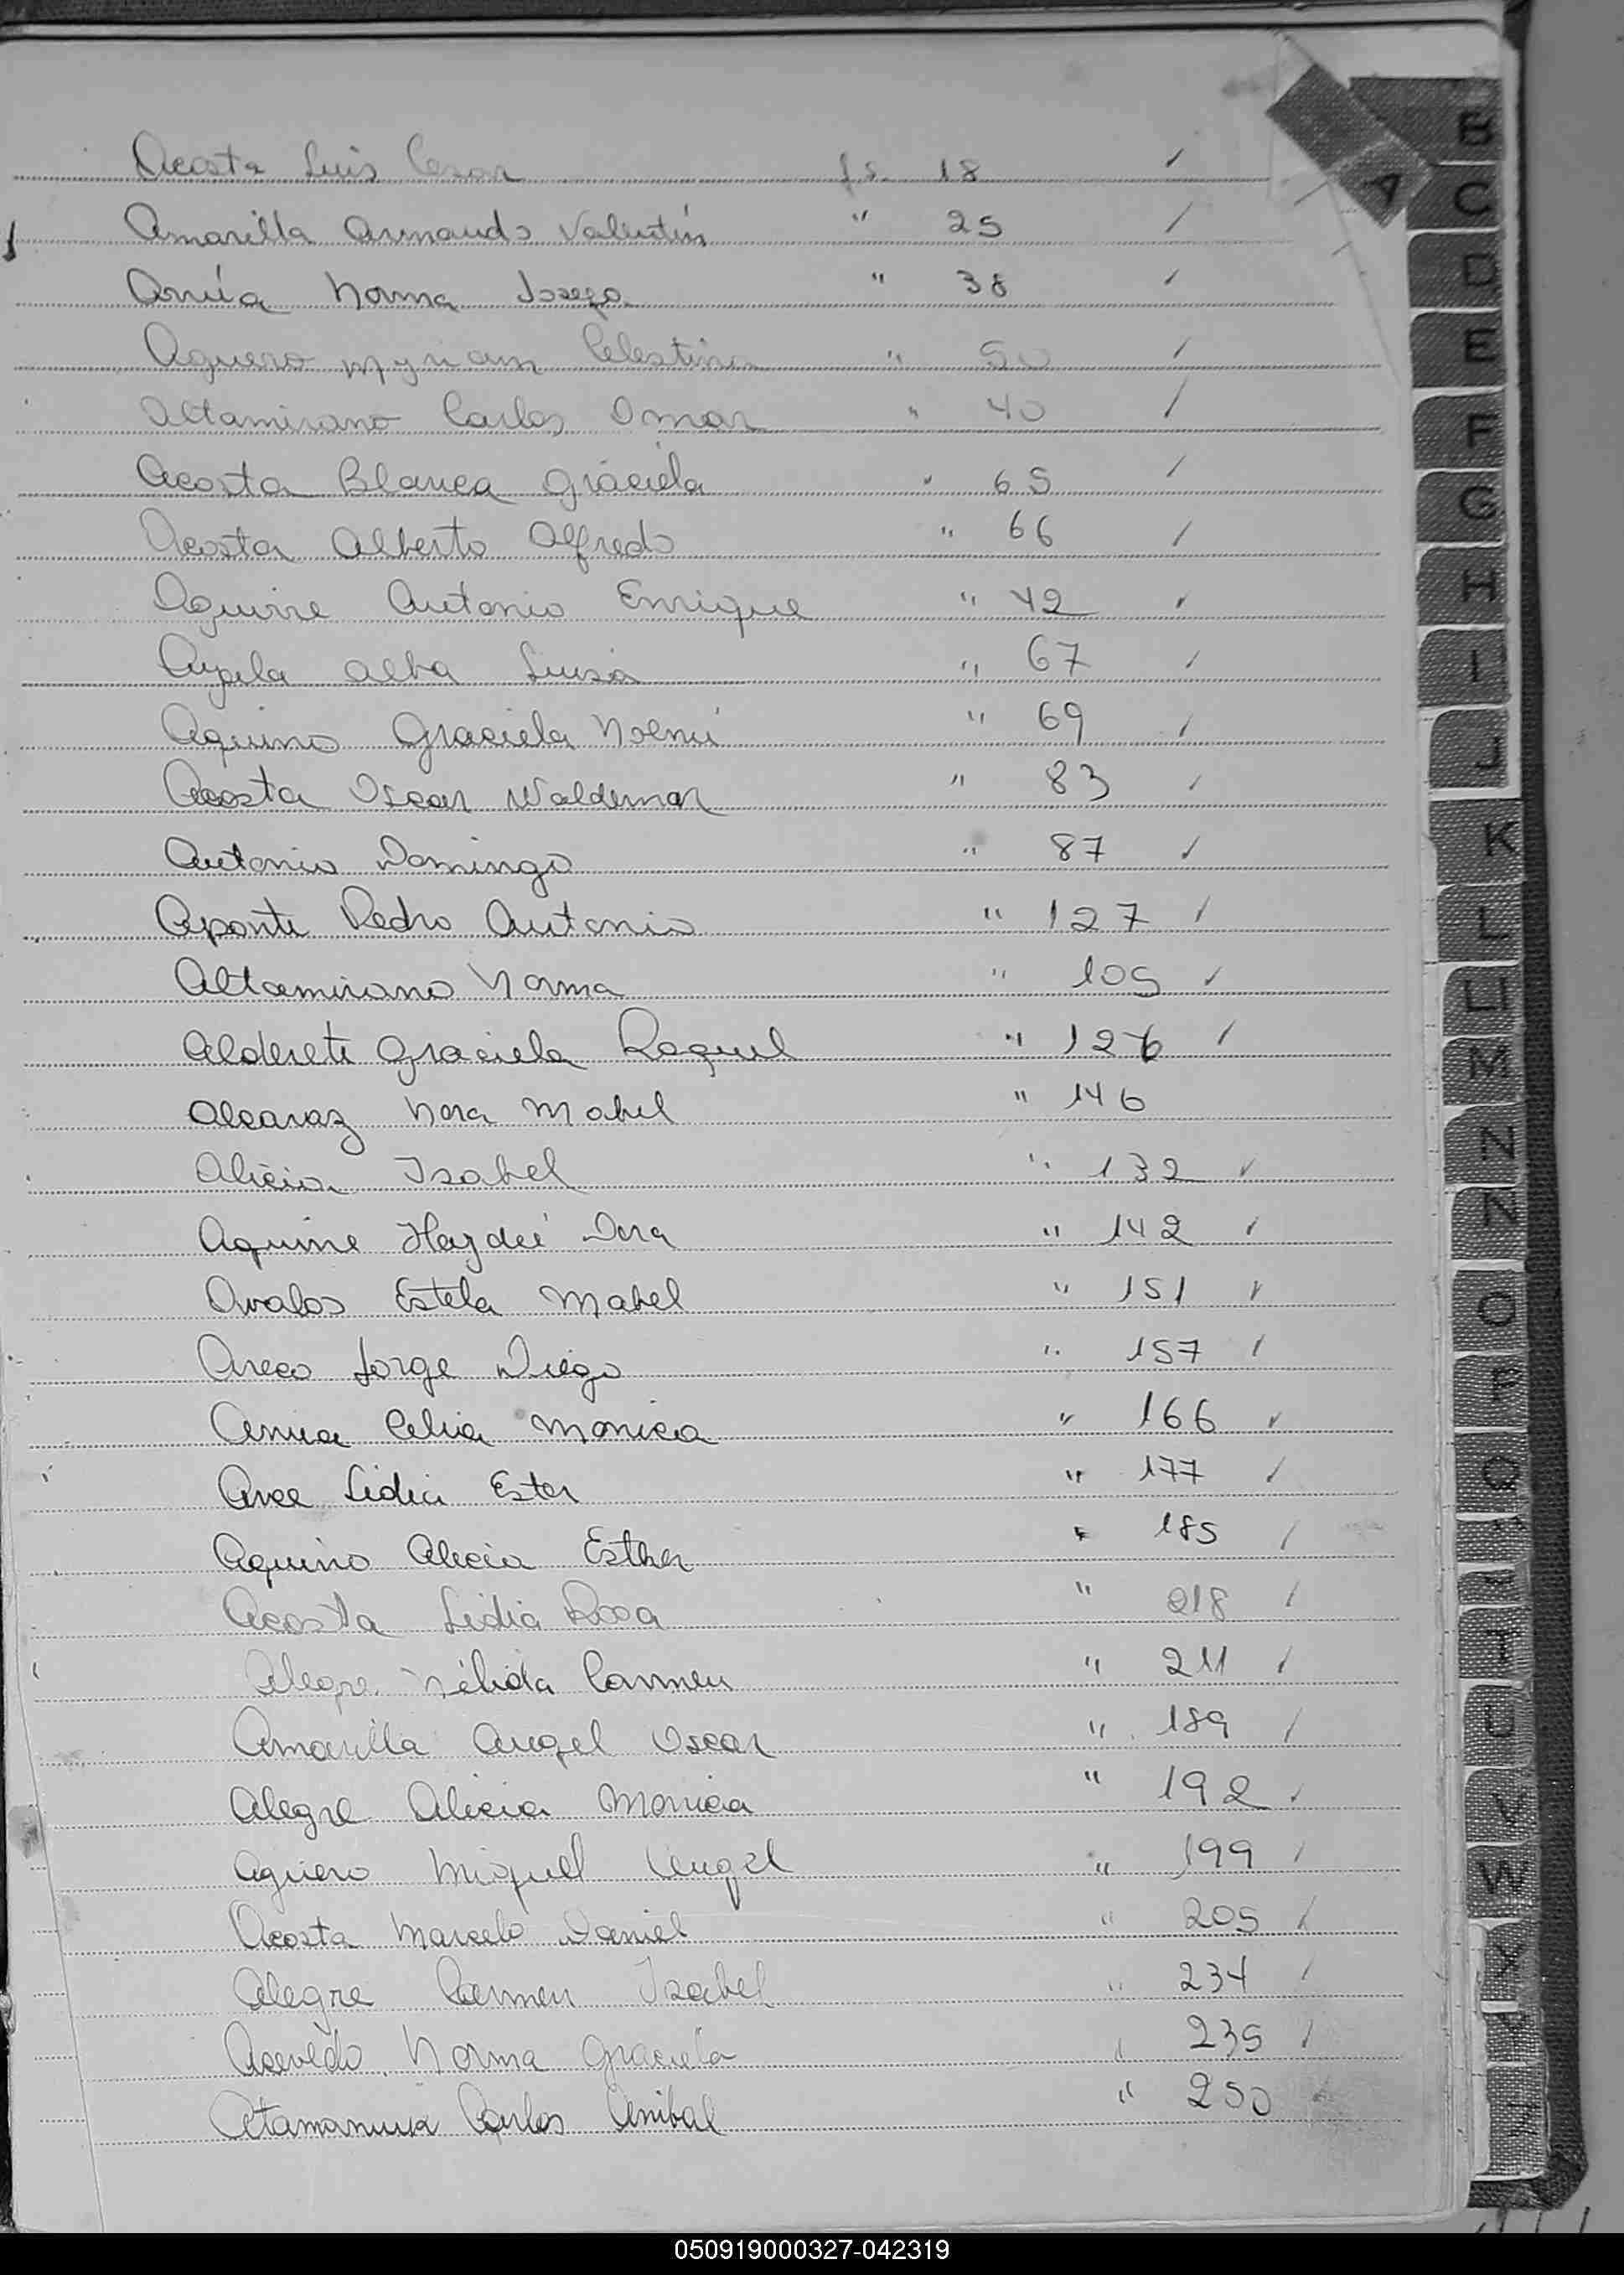 Acosta Luis Cesar fs. 18 ✓
Amarilla Armando Valentín " 25 ✓
Arrúa Norma Josefa " 38 ✓
Aguero Myriam Celestina " 50 ✓
Altamirano Carlos Omar " 40 ✓
Acosta Blanca Graciela " 65 ✓
Acosta Alberto Alfredo " 66 ✓
Aguirre Antonio Enrique " 42 ✓
Ayala Alba Luisa " 67 ✓
Aquino Graciela Noemí " 69 ✓
Acosta Oscar Waldemar " 83 ✓
Antonio Domingo " 87 ✓
Aponte Pedro Antonio " 127 ✓
Altamirano Norma " 105 ✓
Alderete Graciela Raquel " 126 ✓
Alcaraz Nora Mabel " 146
Alicia Isabel " 132 ✓
Aquine Haydeé Dora " 142 ✓
Avalos Estela Mabel " 151 ✓
Areco Jorge Diego " 157 ✓
Arrua Celia Monica " 166 ✓
Arce Lidia Ester " 177 ✓
Aquino Alicia Esther " 185 ✓
Acosta Lidia Rosa " 218 ✓
Alegre Nélida Carmen " 211 ✓
Amarilla Angel Oscar " 189 ✓
Alegre Alicia Monica " 192 ✓
Aguero Miguel Angel " 199 ✓
Acosta Marcelo Daniel " 205 ✓
Alegre Carmen Isabel " 234 ✓
Acevedo Norma Graciela " 235 ✓
Atamanuk Carlos Anibal " 250 ✓
A
B
C
D
E
F
G
H
I
J
K
L
LL
M
N
Ñ
O
P
Q
T
U
V
W
X
Y
Z
050919000327-042319